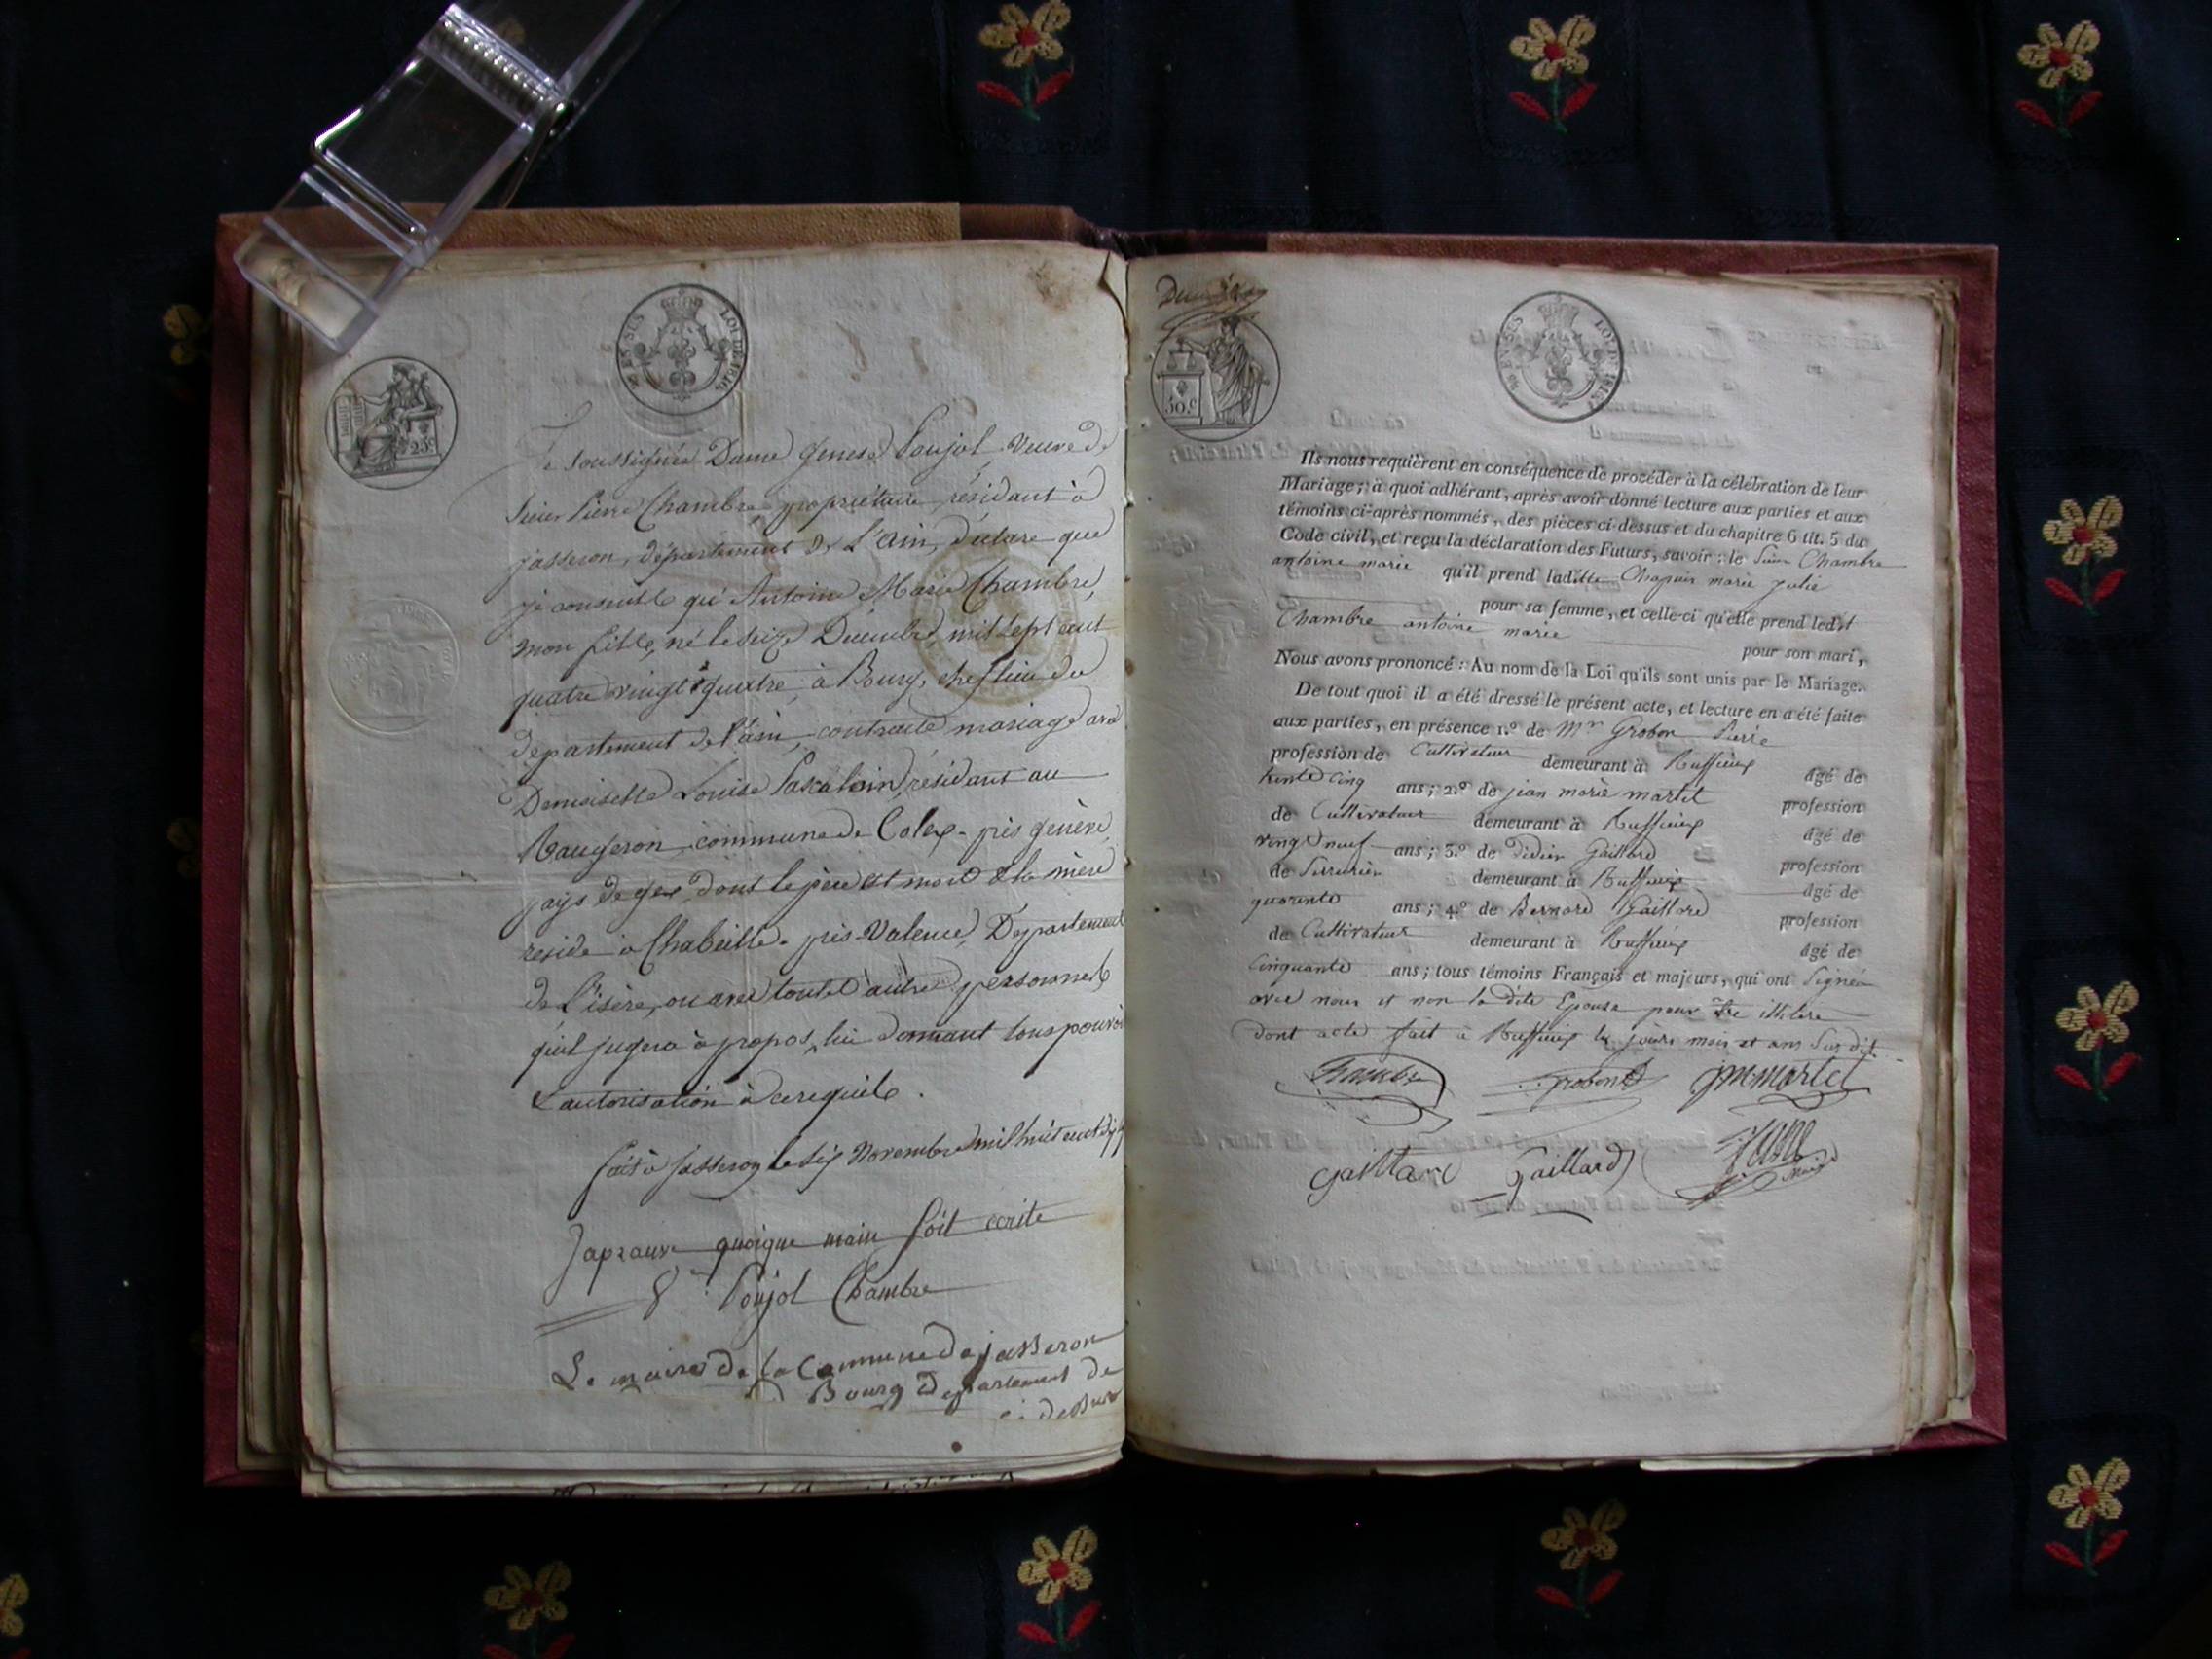 EN SUS
LOI DE 1816
25.c
Je soussignée Dame Poujol Veuve de
Sieur Pierre Chambre, propriétaire, résidant à
jasseron, département de L'ain, déclare que
je consent que Antoine Marie Chambre,
mon fils, né le seize Décembre, mil sept cent
quatre vingt quatre, à Bourg, chef lieu du
département de l'ain, contracte mariage avec
Demoiselle Louise résidant au
commune de Colex près genève,
pays de gex, dont le père est mort & la mère
reside à Chabeille près Valence, Departement
de L'isère, ou avec toute autre personne
qu'il jugera à propos, lui donnant tous pouvoir
& autorisation à ce requis.
fait à Jasseron le six Novembre mil huit cent dix
J'aprauve quoique main soit écrite
Ve. Poujol Chambre
Le maire de la Commune de jasseron
Bourg Departement de
EN SUS
LOI DE 1816
50.c
Ils nous requièrent en conséquence de procéder à la célébration de leur
Mariage; à quoi adhérant, après avoir donné lecture aux parties et aux
témoins ci-après nommés, des pièces ci-dessus et du chapitre 6 tit. 5 du
Code civil, et reçu la déclaration des Futurs, savoir : le Sieur Chambre
antoine marie qu'il prend laditte Chapuis marie julie
pour sa femme, et celle-ci qu'elle prend ledit
Chambre antoine marie
pour son mari,
Nous avons prononcé : Au nom de la Loi qu'ils sont unis par le Mariage.
De tout quoi il a été dressé le présent acte, et lecture en a été faite
aux parties, en présence 1.º de Mr Grobon Pierre
profession de Cultivateur demeurant à Ruffieux âgé de
trente cinq ans; 2.º de jean marie martel profession
de Cultivateur demeurant à Ruffieux âgé de
vingt neuf ans; 3.º de Didier Gaillard profession
de Serrurier demeurant à Ruffieux âgé de
quarante ans; 4.º de Bernard Gaillard profession
de Cultivateur demeurant à Ruffieux âgé de
cinquante ans; tous témoins Français et majeurs, qui ont Signés
avec nous et non la dite Epouse pour être illitere
dont acte fait à Ruffieux les jours mois et ans Sus dit
Chambre Grobon jm martel
gaillard Gaillard
Maire